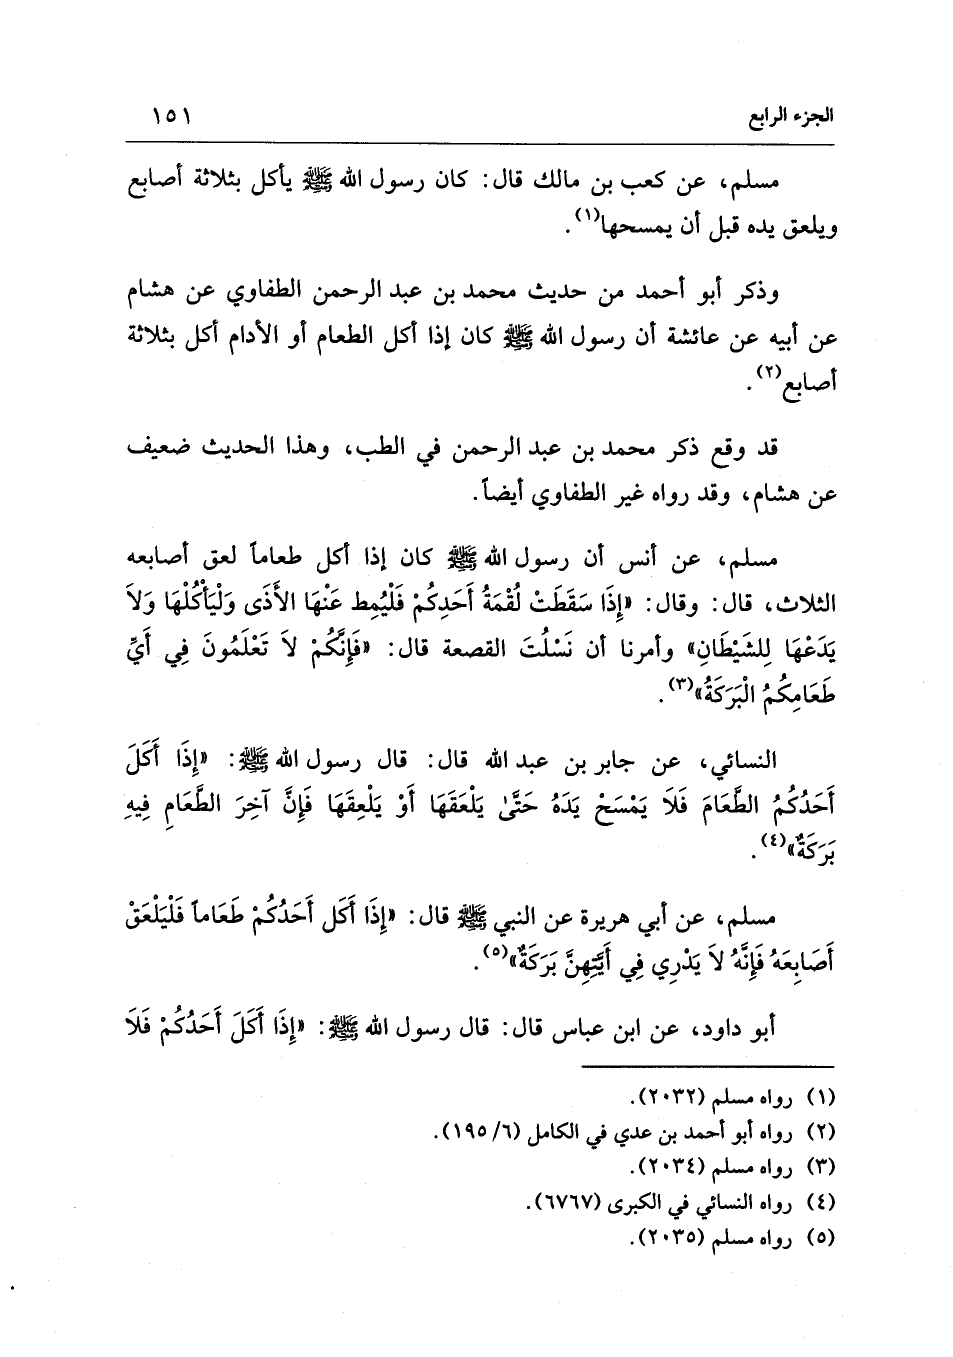 الجزء الرابع ١٥١
مسلم، عن كعب بن مالك قال: كان رسول الله ﷺ يأكل بثلاثة أصابع
ويلعق يده قبل أن يمسحها(١).
وذكر أبو أحمد من حديث محمد بن عبد الرحمن الطفاوي عن هشام
عن أبيه عن عائشة أن رسول الله ﷺ كان إذا أكل الطعام أو الأدام أكل بثلاثة
أصابع(٢).
قد وقع ذكر محمد بن عبد الرحمن في الطب، وهذا الحديث ضعيف
عن هشام، وقد رواه غير الطفاوي أيضاً.
مسلم، عن أنس أن رسول الله ﷺ كان إذا أكل طعاماً لعق أصابعه
الثلاث، قال: وقال: «إِذَا سَقَطَتْ لُقْمَةُ أَحَدِكُمْ فَلْيُمِط عَنْهَا الأَذَى وَلْيَأْكُلْهَا وَلاَ
يَدَعْهَا لِلشَيْطَانِ» وأمرنا أن نَسْلُتَ القصعة قال: «فَإِنَّكُمْ لاَ تَعْلَمُونَ فِي أَيِّ
طَعَامِكُمُ الْبَرَكَةُ»(٣).
النسائي، عن جابر بن عبد الله قال: قال رسول الله ﷺ: «إِذَا أَكَلَ
أَحَدُكُمُ الطَّعَامَ فَلَا يَمْسَحْ يَدَهُ حَتَّىٰ يَلْعَقَهَا أَوْ يَلْعِقَهَا فَإِنَّ آخِرَ الطَّعَامِ فِيهِ
بَرَكَةٌ»(٤).
مسلم، عن أبي هريرة عن النبي ﷺ قال: «إِذَا أَكَل أَحَدُكُمْ طَعَاماً فَلْيَلْعَقْ
أَصَابِعَهُ فَإِنَّهُ لاَ يَدْرِي فِي أَيَّتِهِنَّ بَرَكَةٌ»(٥).
أبو داود، عن ابن عباس قال: قال رسول الله ﷺ: «إِذَا أَكَلَ أَحَدُكُمْ فَلَا
(١) رواه مسلم (٢٠٣٢).
(٢) رواه أبو أحمد بن عدي في الكامل (٦/ ١٩٥).
(٣) رواه مسلم (٢٠٣٤).
(٤) رواه النسائي في الكبرى (٦٧٦٧).
(٥) رواه مسلم (٢٠٣٥).